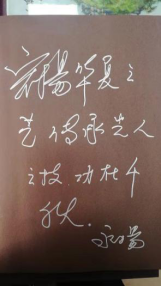 弘扬华夏之
艺传承先人
之技.功在千
秋.